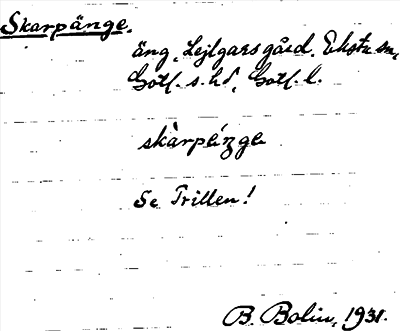 Skarpänge.
äng, Lejlgårsgård, Ekstu sn,
Gotl. s. hd, Gotl. l.
skàrpéŋge
Se Trillen!
B. Bolin, 1931.